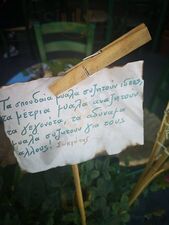 Τα σπουδαία μυαλά συζητούν ιδέες,
τα μέτρια μυαλά αναζητουν
τα γεγονότα, τα αδύναμα
μυαλά συζητουν για τους
άλλους! Σωκράτης